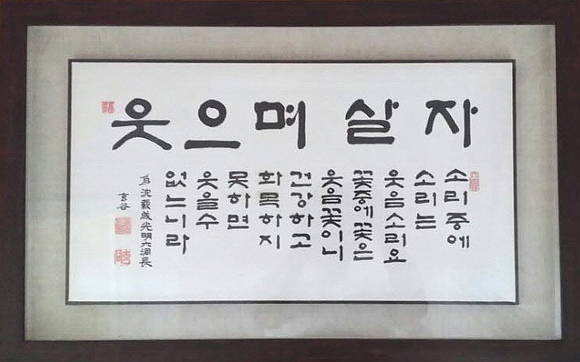 웃으며 살자
소리중에
소리는
웃음소리요
꽃중에꽃은
웃음꽃이니
건강하고
화목하지
못하면
웃을수
없느니라
為 沈載 光明六洞長
玄谷